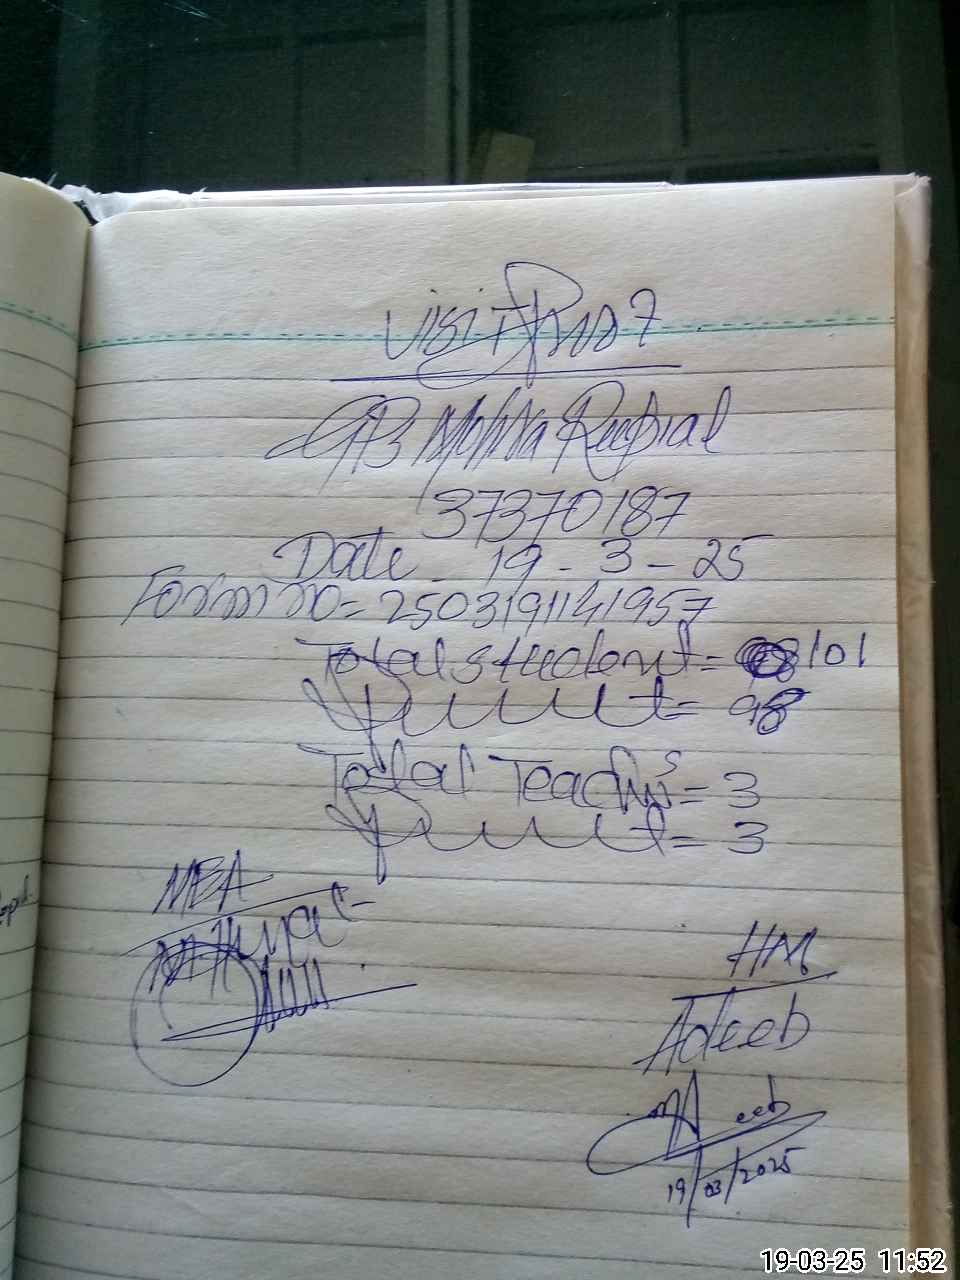 Visit Proof
GB Mohra Rupial
37370187
Date - 19 - 3 - 25
Form no = 2503191141957
Total student = 101
Present = 98
Total Teachers = 3
Present = 3
MEA
HM
Adeeb
19/03/2025
19-03-25 11:52